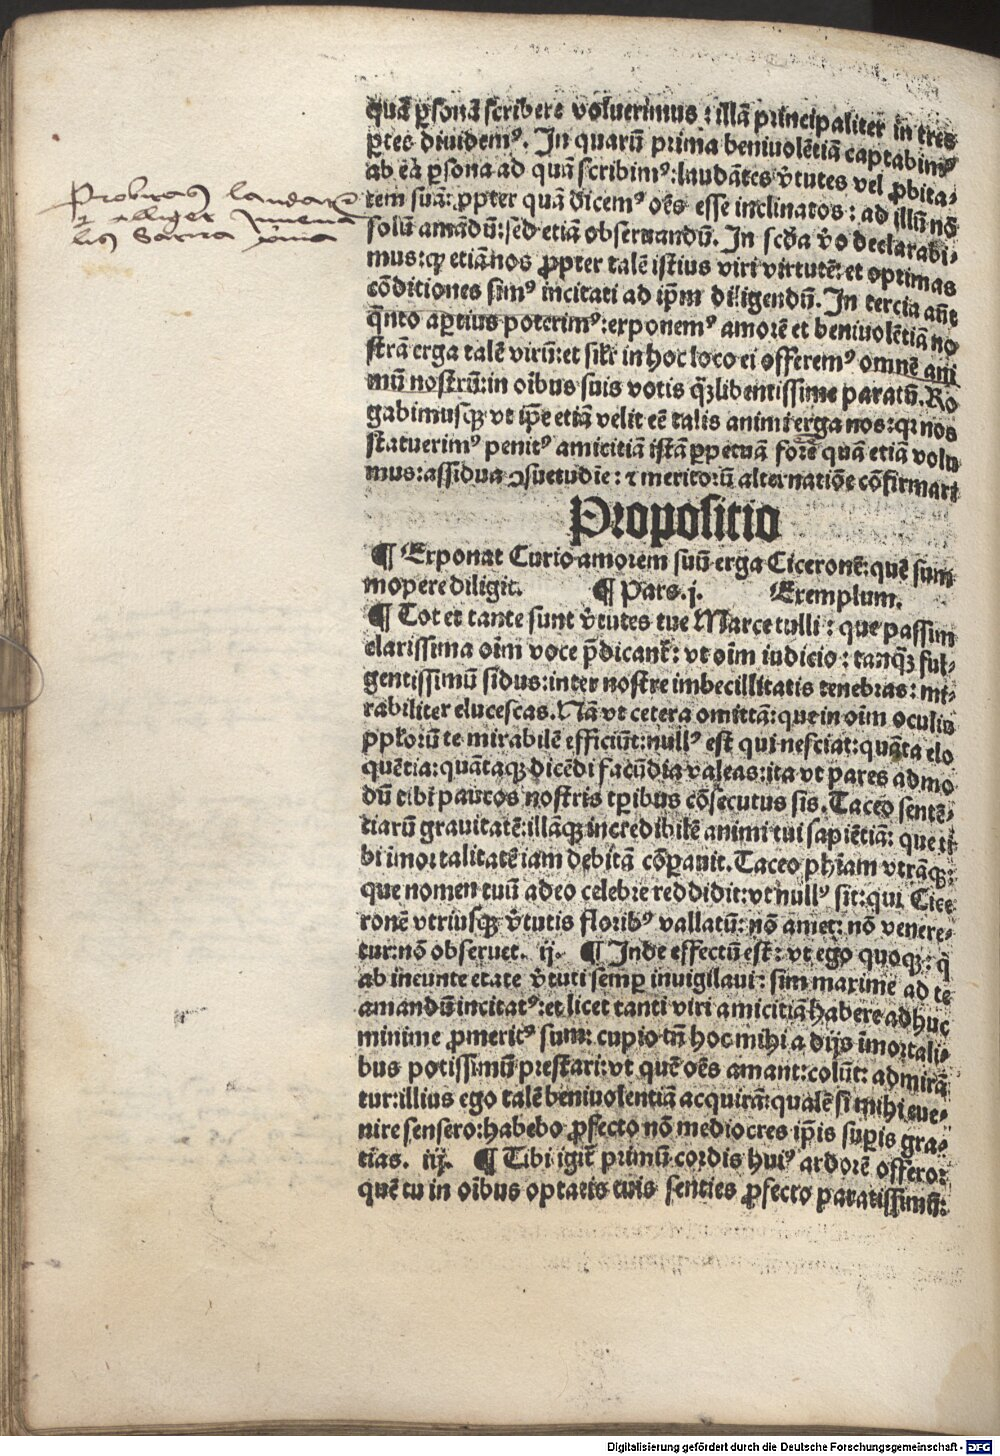 quā ꝑsonā scribere voluerimus : illā principaliter in tres
ꝑtes diuidemꝰ. In quarū prima beniuolētiā captabimꝰ
ab ea ꝑsona ad quā scribimꝰ: laudātes v̄tutes vel ꝓbita⸗
tem suā: ꝓpter quā dicemꝰ oēs esse inclinatos : ad illū nō
solū amādū: sed etiā obseruandū. In scḋa v̊o declarabi⸗
mus: ꝙ etiā nos ꝓpter talē istius viri virtutē: et optimas
cōditiones simꝰ incitati ad ip̄m diligendū. In tercia aūt
q̄nto aꝑtius poterimꝰ: exponemꝰ amorē et beniuolētiā no
strā erga talē virū: et silr̄ in hoc loco ei offeremꝰ omnē ani
mū nostrū: in oībus suis votis q̄ꝫlibentissime paratū. Ro
gabimusqꝫ vt ip̄e etiā velit eē talis animi erga nos: qꝛ nos
statuerimꝰ penitꝰ amicitiā istā ꝑpetuā forē quā etiā volu
mus: assidua ↄsuetudīe : ⁊ meritorū alternatiōe cōfirmari
Propositio
¶ Exponat Curio amorem suū erga Ciceronē: quē sum
mopere diligit. ¶ Pars. j. Exemplum.
¶ Tot et tante sunt v̄tutes tue Marce tulli : que passim
clarissima oīm voce p̄dicant̄ : vt oīm iudicio : tanqꝫ ful⸗
gentissimū sidus: inter nostre imbecillitatis tenebras: mi⸗
rabiliter elucescas. Nā vt cetera omittā: que in oīm oculis
ppl̄orū te mirabilē efficiūt: nullꝰ est qui nesciat: quāta elo
quētia: quātaqꝫ dicēdi facūdia valeas: ita vt pares admo
dū tibi paucos nostris tꝑibus cōsecutus sis. Taceo sentē⸗
tiarū grauitatē: illāqꝫ incredibilē animi tui sapiētiā: que ti
bi īmortalitatē iam debitā cōꝑauit. Taceo ph̄iam vtrāqꝫ:
que nomen tuū adeo celebre reddidit: vt nullꝰ sit: qui Cice
ronē vtriusqꝫ v̄tutis floribꝰ vallatū: nō amet: nō venere⸗
tur: nō obseruet. ij. ¶ Inde effectū est: vt ego quoqꝫ: q̇
ab ineunte etate v̄tuti semꝑ inuigilaui : sim maxime ad te
amandū incitatꝰ: et licet tanti viri amicitiā habere adhuc
minime ꝓmeritꝰ sum: cupio tn̄ hoc mihi a dijs īmortali⸗
bus potissimū prestari: vt quē oēs amant: colūt: admirā
tur: illius ego talē beniuolentiā acquirā: qualē si mihi eue⸗
nire sensero: habebo ꝓfecto nō mediocres ip̄is suꝑis gra⸗
tias. iij. ¶ Tibi igit̄ primū cordis huiꝰ ardorē offero:
quē tu in oībus optatis tuis senties ꝓfecto paratissimū:
Probitas laudatur
⁊ alliget Juuena
lis Satira prima
Digitalisierung gefördert durch die Deutsche Forschungsgemeinschaft - DFG